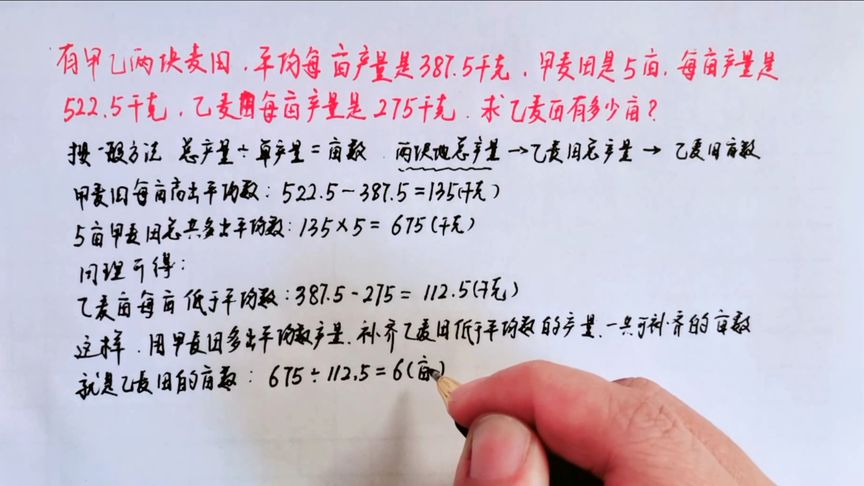 有甲乙两块麦田,平均每亩产量是387.5千克,甲麦田是5亩,每亩产量是
522.5千克,乙麦田每亩产量是275千克.求乙麦田有多少亩?
按一般方法 总产量÷单产量=亩数 两块地总产量→乙麦田总产量→乙麦田亩数
甲麦田每亩高出平均数:522.5-387.5=135(千克)
5亩甲麦田总共多出平均数:135×5=675(千克)
同理可得:
乙麦亩每亩低于平均数:387.5-275=112.5(千克)
这样.用甲麦田多出平均数产量.补齐乙麦田低于平均数的产量.一共可补齐的亩数
就是乙麦田的亩数:675÷112.5=6(亩)